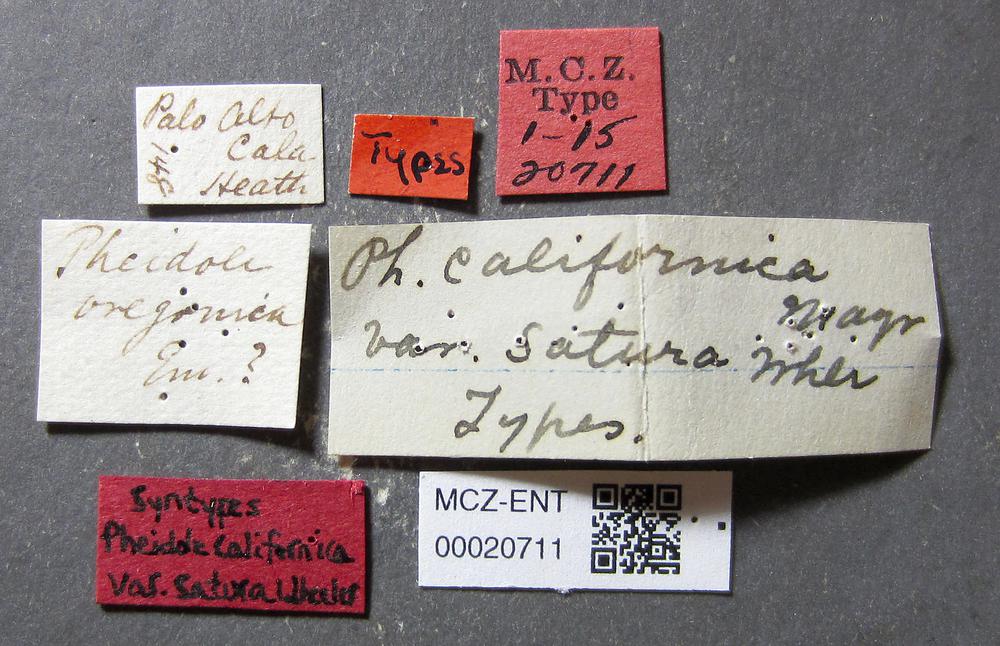 Palo Alto
Cala
Heath
Types
M.C.Z.
Type
1-15
20711
Pheidole
oregonica
Em.?
Ph. californica
Mayr
var. satura Wher
Types.
Syntypes
Pheidole californica
Var. satura Wheeler
MCZ-ENT
00020711